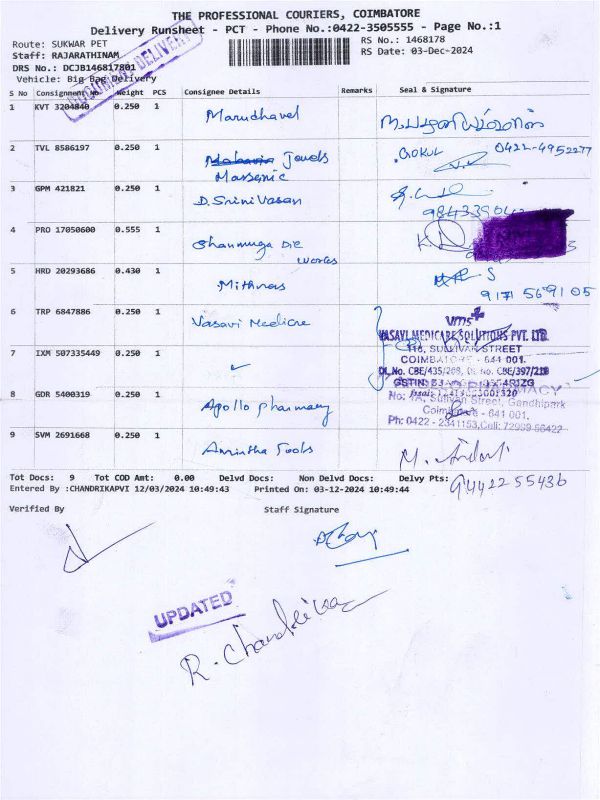 THE PROFESSIONAL COURIERS, COIMBATORE
Delivery Runsheet - PCT - Phone No.:0422-3505555 - Page No.:1
Route: SUKWAR PET
RS No.: 1468178
Staff: RAJARATHINAM
RS Date: 03-Dec-2024
DRS No.: DCJB146817801
Vehicle: Big Bag Delivery
DELIVERY
S No Consignment No Weight PCS Consignee Details Remarks Seal & Signature
1 KVT 3204840 0.250 1 Marudhavel
2 TVL 8586197 0.250 1 Jewels GOKUL 0422-4952277
3 GPM 421821 0.250 1 D. Srinivasan
4 PRO 17050600 0.555 1 Shanmuga Die Works
5 HRD 20293686 0.430 1 Mithras S
9171 569105
6 TRP 6847886 0.250 1 Vasavi Medicare
vms
VASAVI MEDICARE SOLUTIONS PVT. LTD.
116, SULLIVAN STREET
7 IXM 507335449 0.250 1
COIMBATORE - 641 001.
8 GDR 5400319 0.250 1 Apollo pharmacy
PHARMACY
Sullivan Street, Gandhipark
Coimbatore - 641 001.
Ph: 0422 - 2341153, Cell: 72999 56422
9 SVM 2691668 0.250 1 Amirtha Tools
9442255436
Tot Docs: 9 Tot COD Amt: 0.00 Delvd Docs: Non Delvd Docs: Delvy Pts:
Entered By :CHANDRIKAPVI 12/03/2024 10:49:43 Printed On: 03-12-2024 10:49:44
Verified By Staff Signature
UPDATED
R. Chandrika